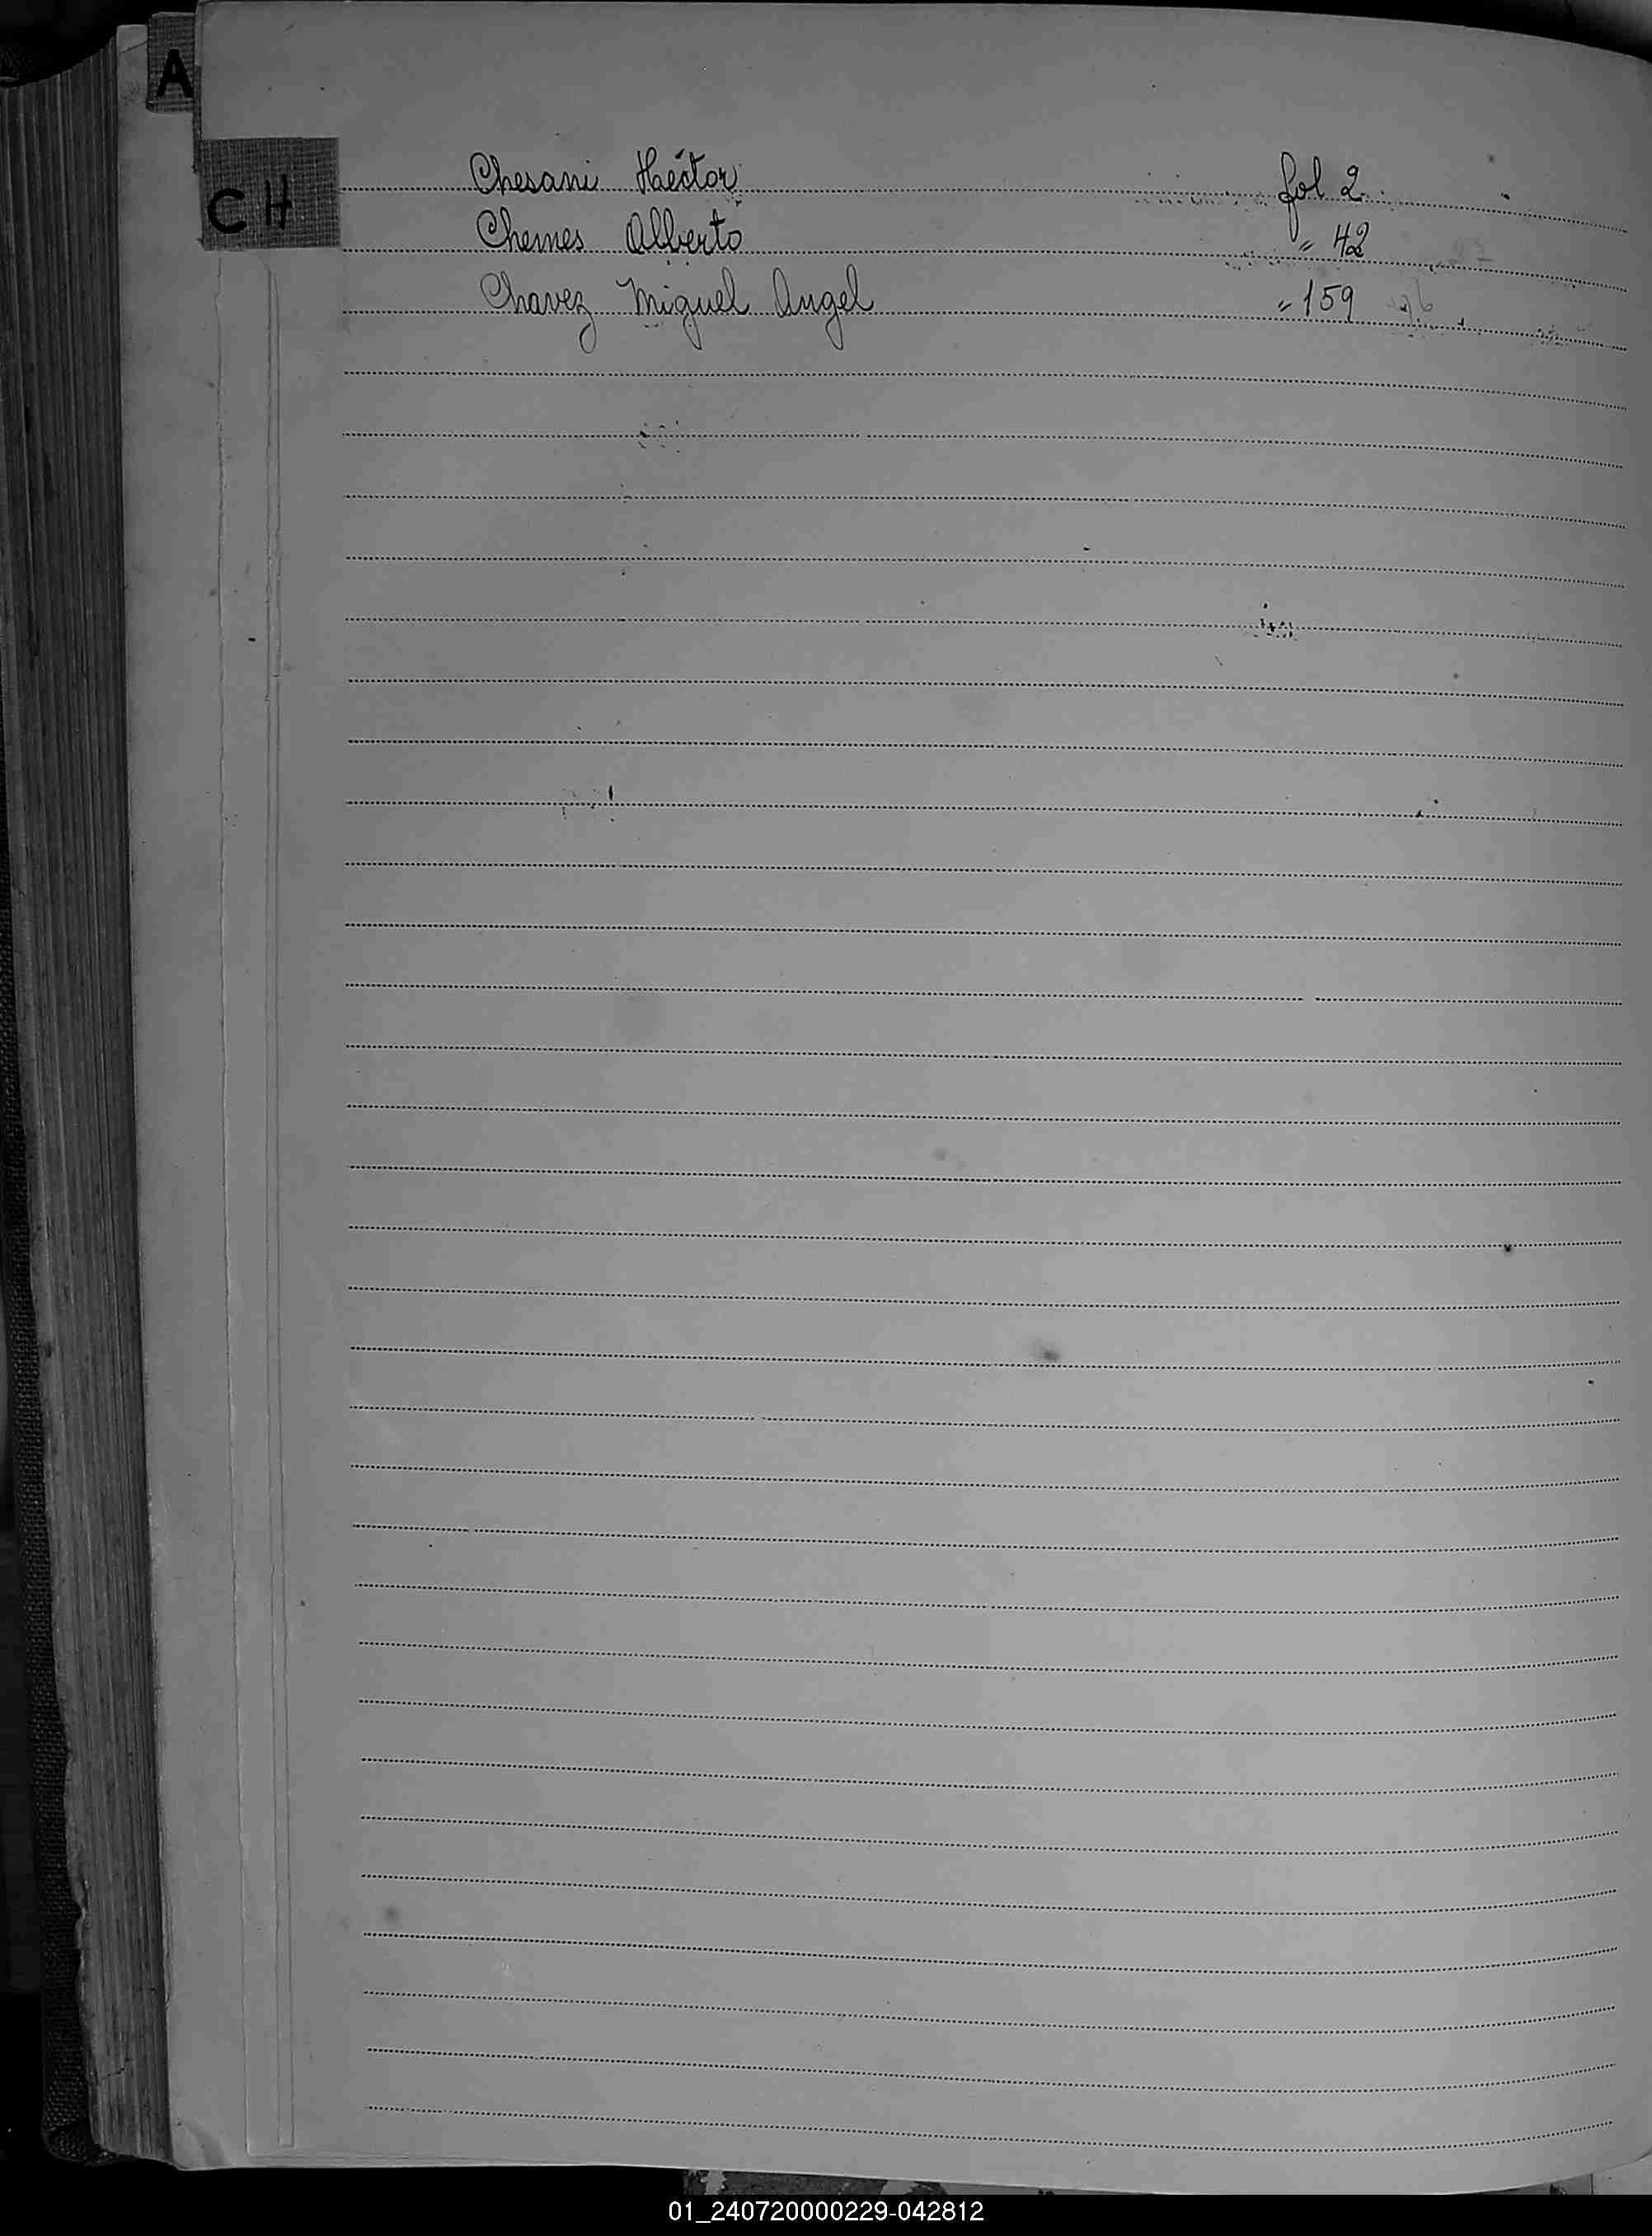 A
CH
Chesani Héctor fol 2
Chemes Alberto " 42
Chavez Miguel Angel " 159
01_240720000229-042812